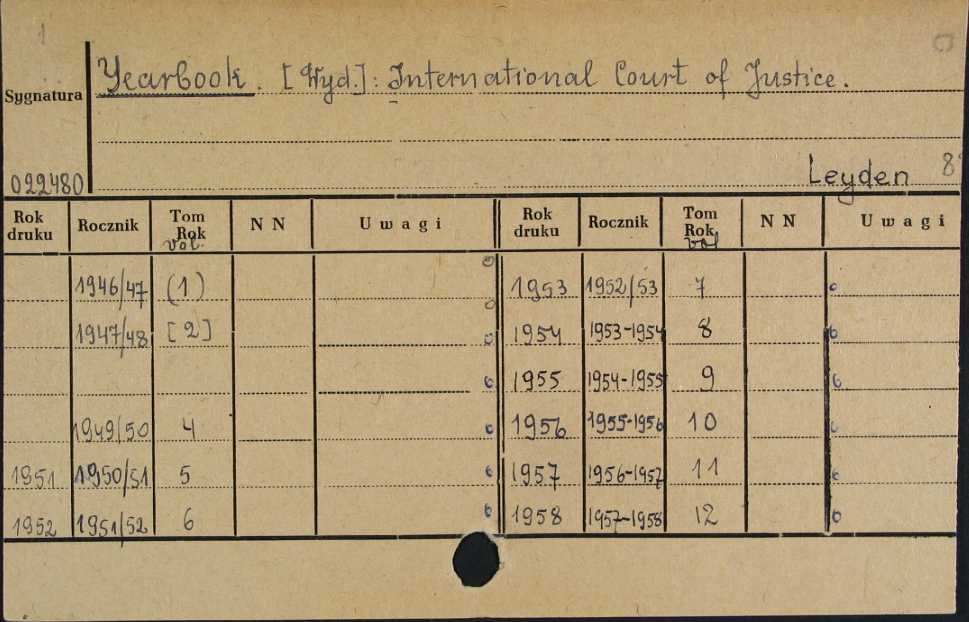 1
Yearbook. [Wyd.]: International Court of Justice.
Sygnatura
022480
Leyden 8°
Rok druku Rocznik Tom Rok vol. N N Uwagi Rok druku Rocznik Tom Rok vol N N Uwagi
1946/47 (1) 1953 1952/53 7
1947/48 [2] 1954 1953-1954 8
1955 1954-1955 9
1949/50 4 1956 1955-1956 10
1951 1950/51 5 1957 1956-1957 11
1952 1951/52 6 1958 1957-1958 12